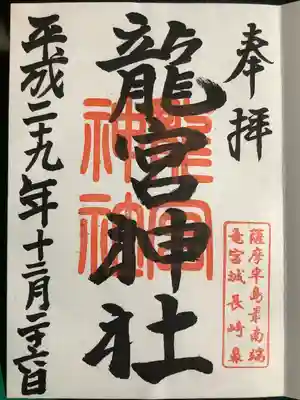 奉拝
薩摩半島最南端
竜宮城長崎鼻
龍宮神社
龍宮
神社
平成二十九年十二月二十六日